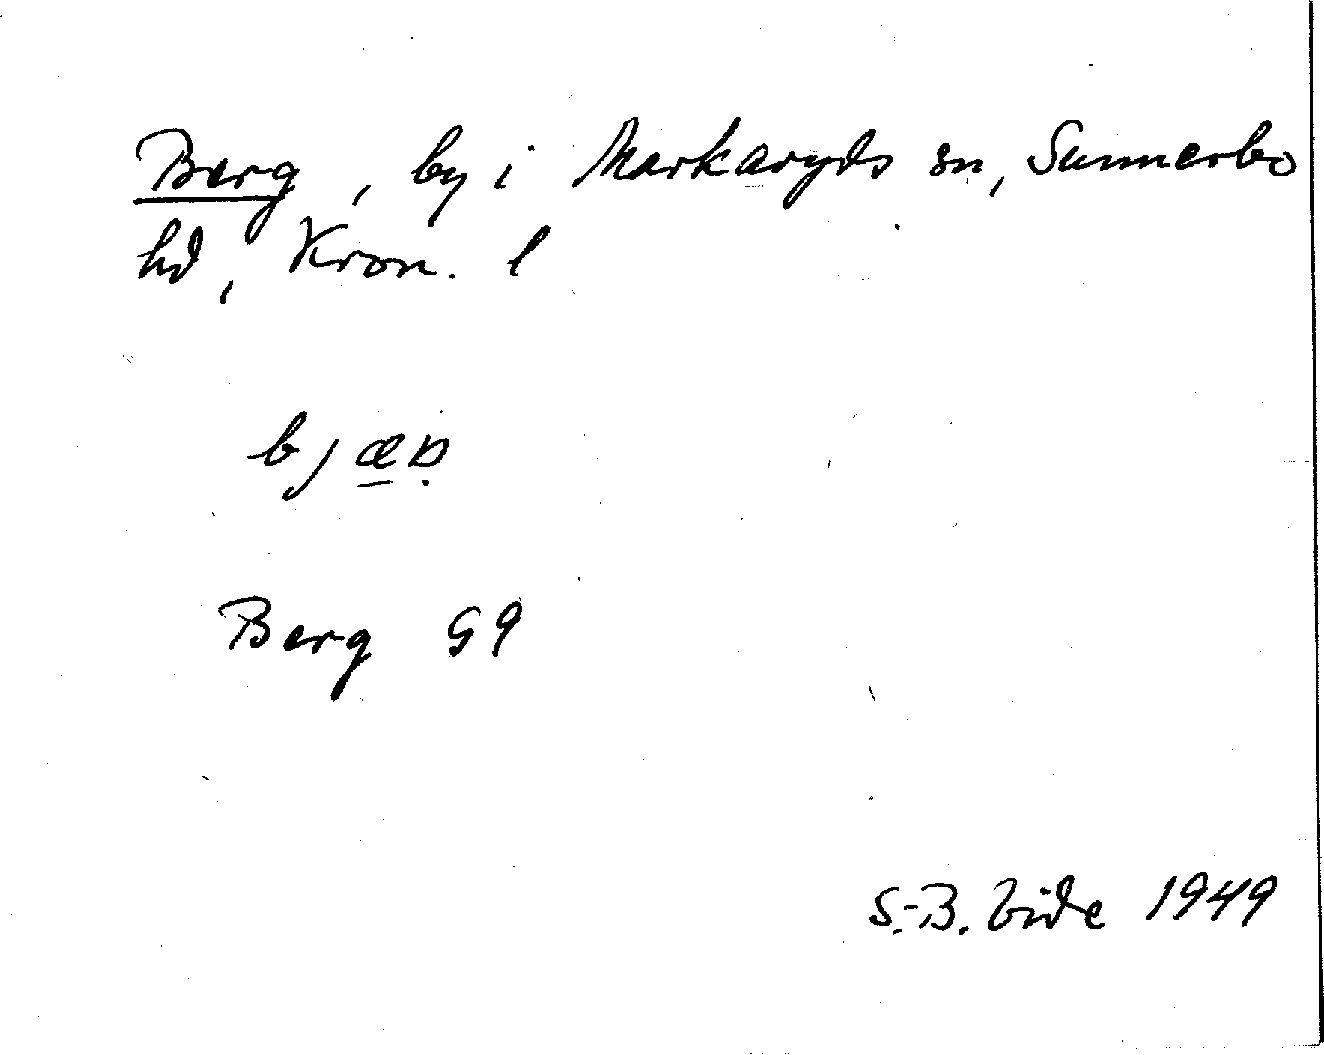 Berg, by i Markaryds sn, Sunnerbo
hd, Kron. l
Berg G9
S.-B. Vide 1949